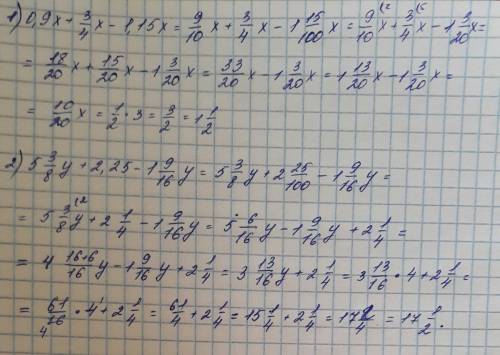 1) 0,9x + 3/4 x - 1,15x = 9/10 x + 3/4 x - 1 15/100 x = 9/10 x (2 + 3/4 x (5 - 1 3/20 x =
= 18/20 x + 15/20 x - 1 3/20 x = 33/20 x - 1 3/20 x = 1 13/20 x - 1 3/20 x =
= 10/20 x = 1/2 · 3 = 3/2 = 1 1/2
2) 5 3/8 y + 2,25 - 1 9/16 y = 5 3/8 y + 2 25/100 - 1 9/16 y =
= 5 3/8 y (2 + 2 1/4 - 1 9/16 y = 5 6/16 y - 1 9/16 y + 2 1/4 =
= 4 16+6/16 y - 1 9/16 y + 2 1/4 = 3 13/16 y + 2 1/4 = 3 13/16 · 4 + 2 1/4 =
= 61/16 4 · 4 1 + 2 1/4 = 61/4 + 2 1/4 = 15 1/4 + 2 1/4 = 17 2/4 = 17 1/2.